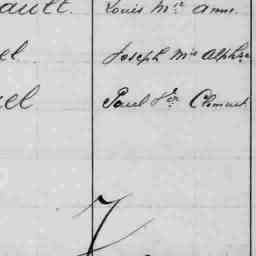 ault. Louis Mie Anne.
el Joseph Mie Alphse
el Paul Fçn Clément